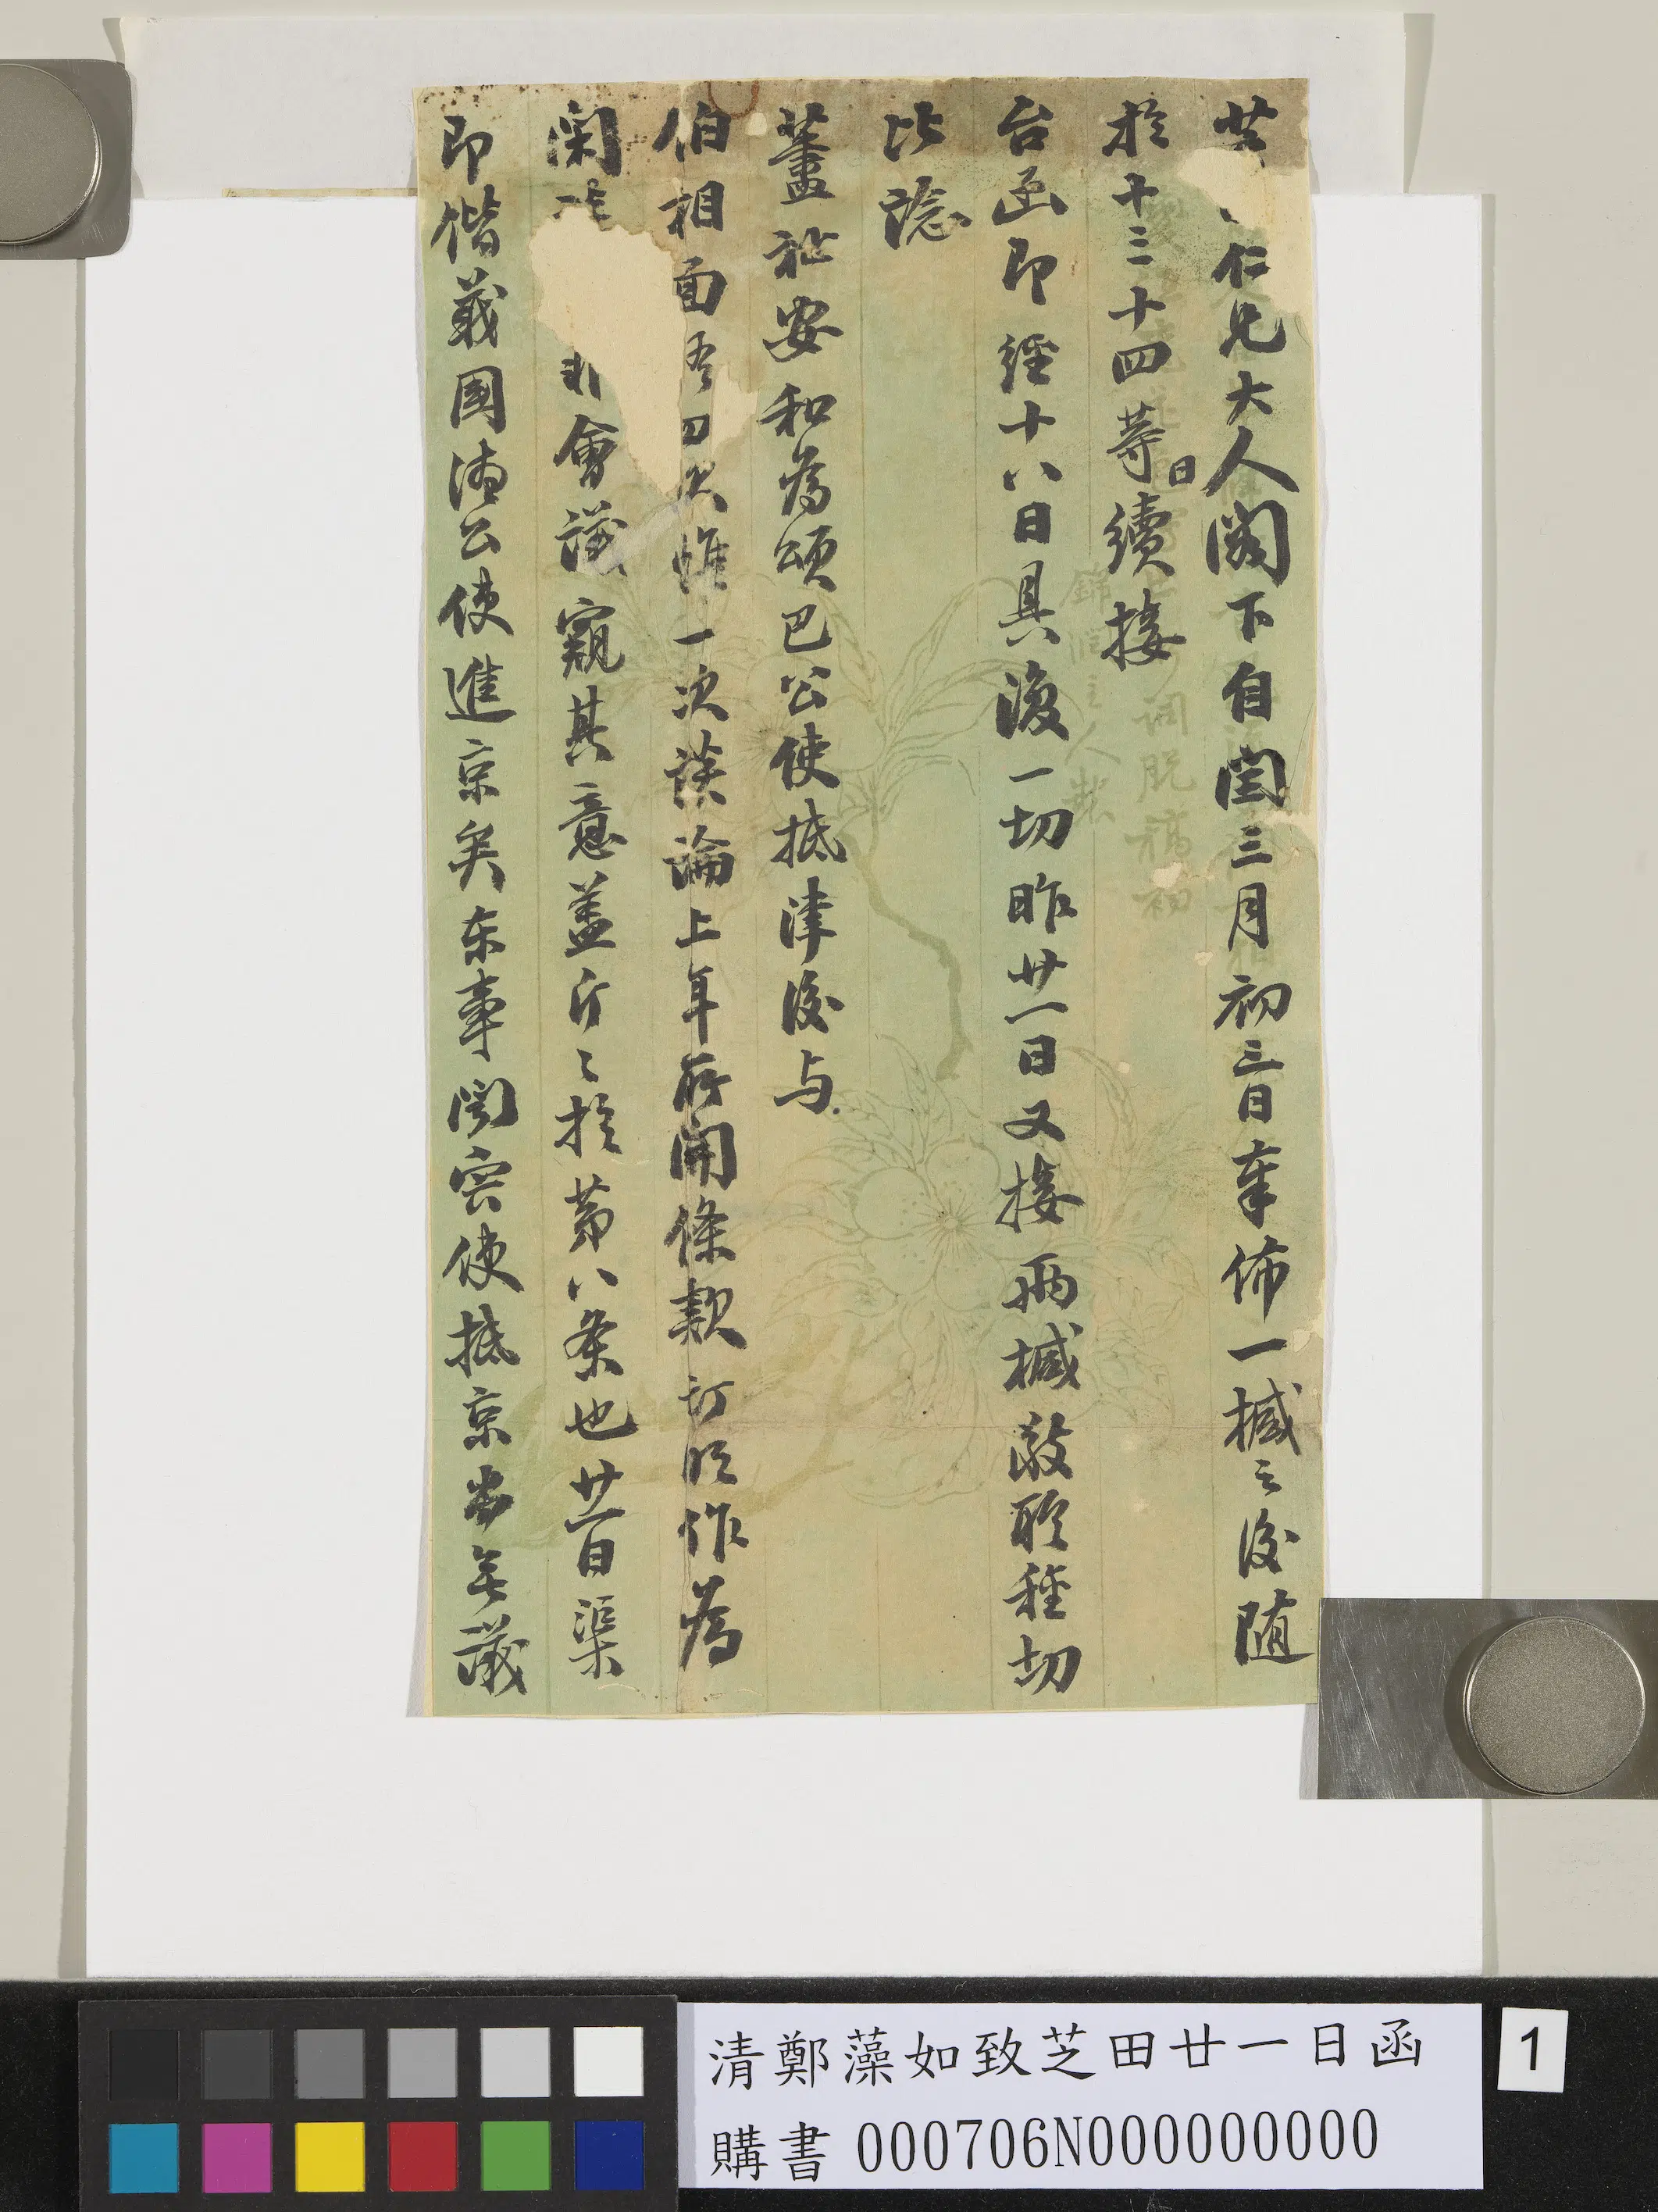 芝仁兄大人閣下自閏三月初三日奉佈一椷之後随
於十三十四等日續接
台函即經十八日具復一切昨廿一日又接兩椷敬聆種切
比諗
藎祉安和為頌巴公使抵津後与
伯相面唔四次惟一次談論上年所開條款訂明作為
閑非會議窺其意盖斤々於苐八条也廿一日渠
即偕義國盧公使進京矣东事聞宍使抵京尚无議
清鄭藻如致芝田廿一日函
購書 000706N000000000
1